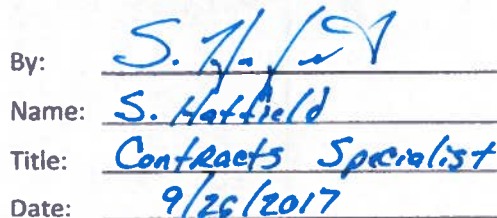 By: S.
Name: S. Hatfield
Title: Contracts Specialist
Date: 9/26/2017